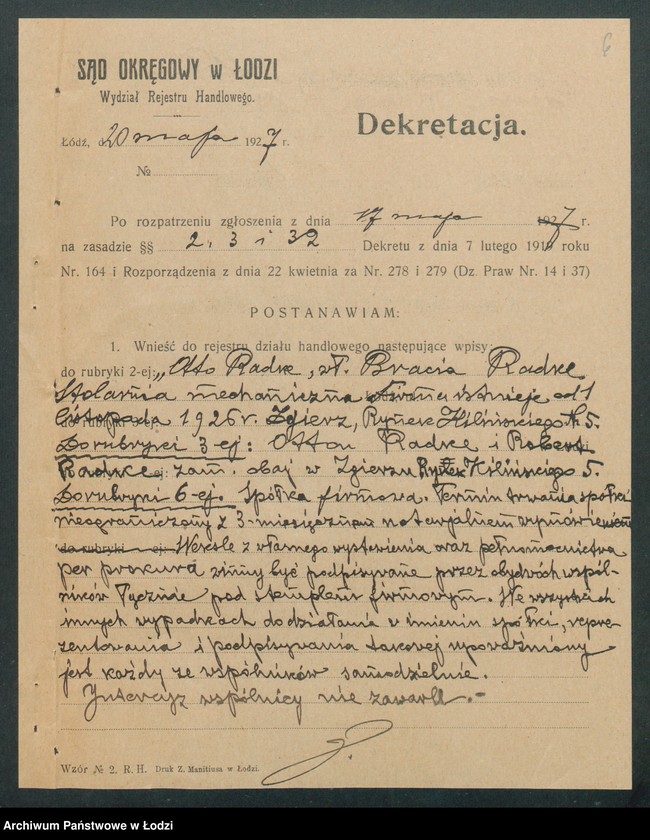 6
SĄD OKRĘGOWY w ŁODZI
Wydział Rejestru Handlowego.
Dekretacja.
Łódź, d. 20 maja 1927 r.
№
Po rozpatrzeniu zgłoszenia z dnia 17 maja 1927 r.
na zasadzie §§ 2, 3 i 32 Dekretu z dnia 7 lutego 1919 roku
Nr. 164 i Rozporządzenia z dnia 22 kwietnia za Nr. 278 i 279 (Dz. Praw Nr. 14 i 37)
POSTANAWIAM:
1. Wnieść do rejestru działu handlowego następujące wpisy:
do rubryki 2-ej: „Otto Radke, wł. Bracia Radke
Stolarnia mechaniczna Firma istnieje od 1
listopada 1926 r. Zgierz, Rynek Kilińskiego № 5.
Do rubryki 3-ej: Otton Radke i Robert
Radke zam. obaj w Zgierzu Rynek Kilińskiego 5.
Do rubryki 6-ej. Spółka firmowa. Termin trwania spółki
nieograniczony z 3-miesięcznem notarjalnem wymówieniem
do rubryki ej: Weksle z własnego wystawienia oraz pełnomocnictwa
per prokura winny być podpisywane przez obydwóch wspól-
ników łącznie pod stemplem firmowym. We wszystkich
innych wypadkach do działania w imieniu spółki, repre-
zentowania i podpisywania takowej upoważniony
jest każdy ze wspólników samodzielnie.
Intercyz wspólnicy nie zawarli.-
Wzór № 2. R. H. Druk Z. Manitiusa w Łodzi.
Archiwum Państwowe w Łodzi